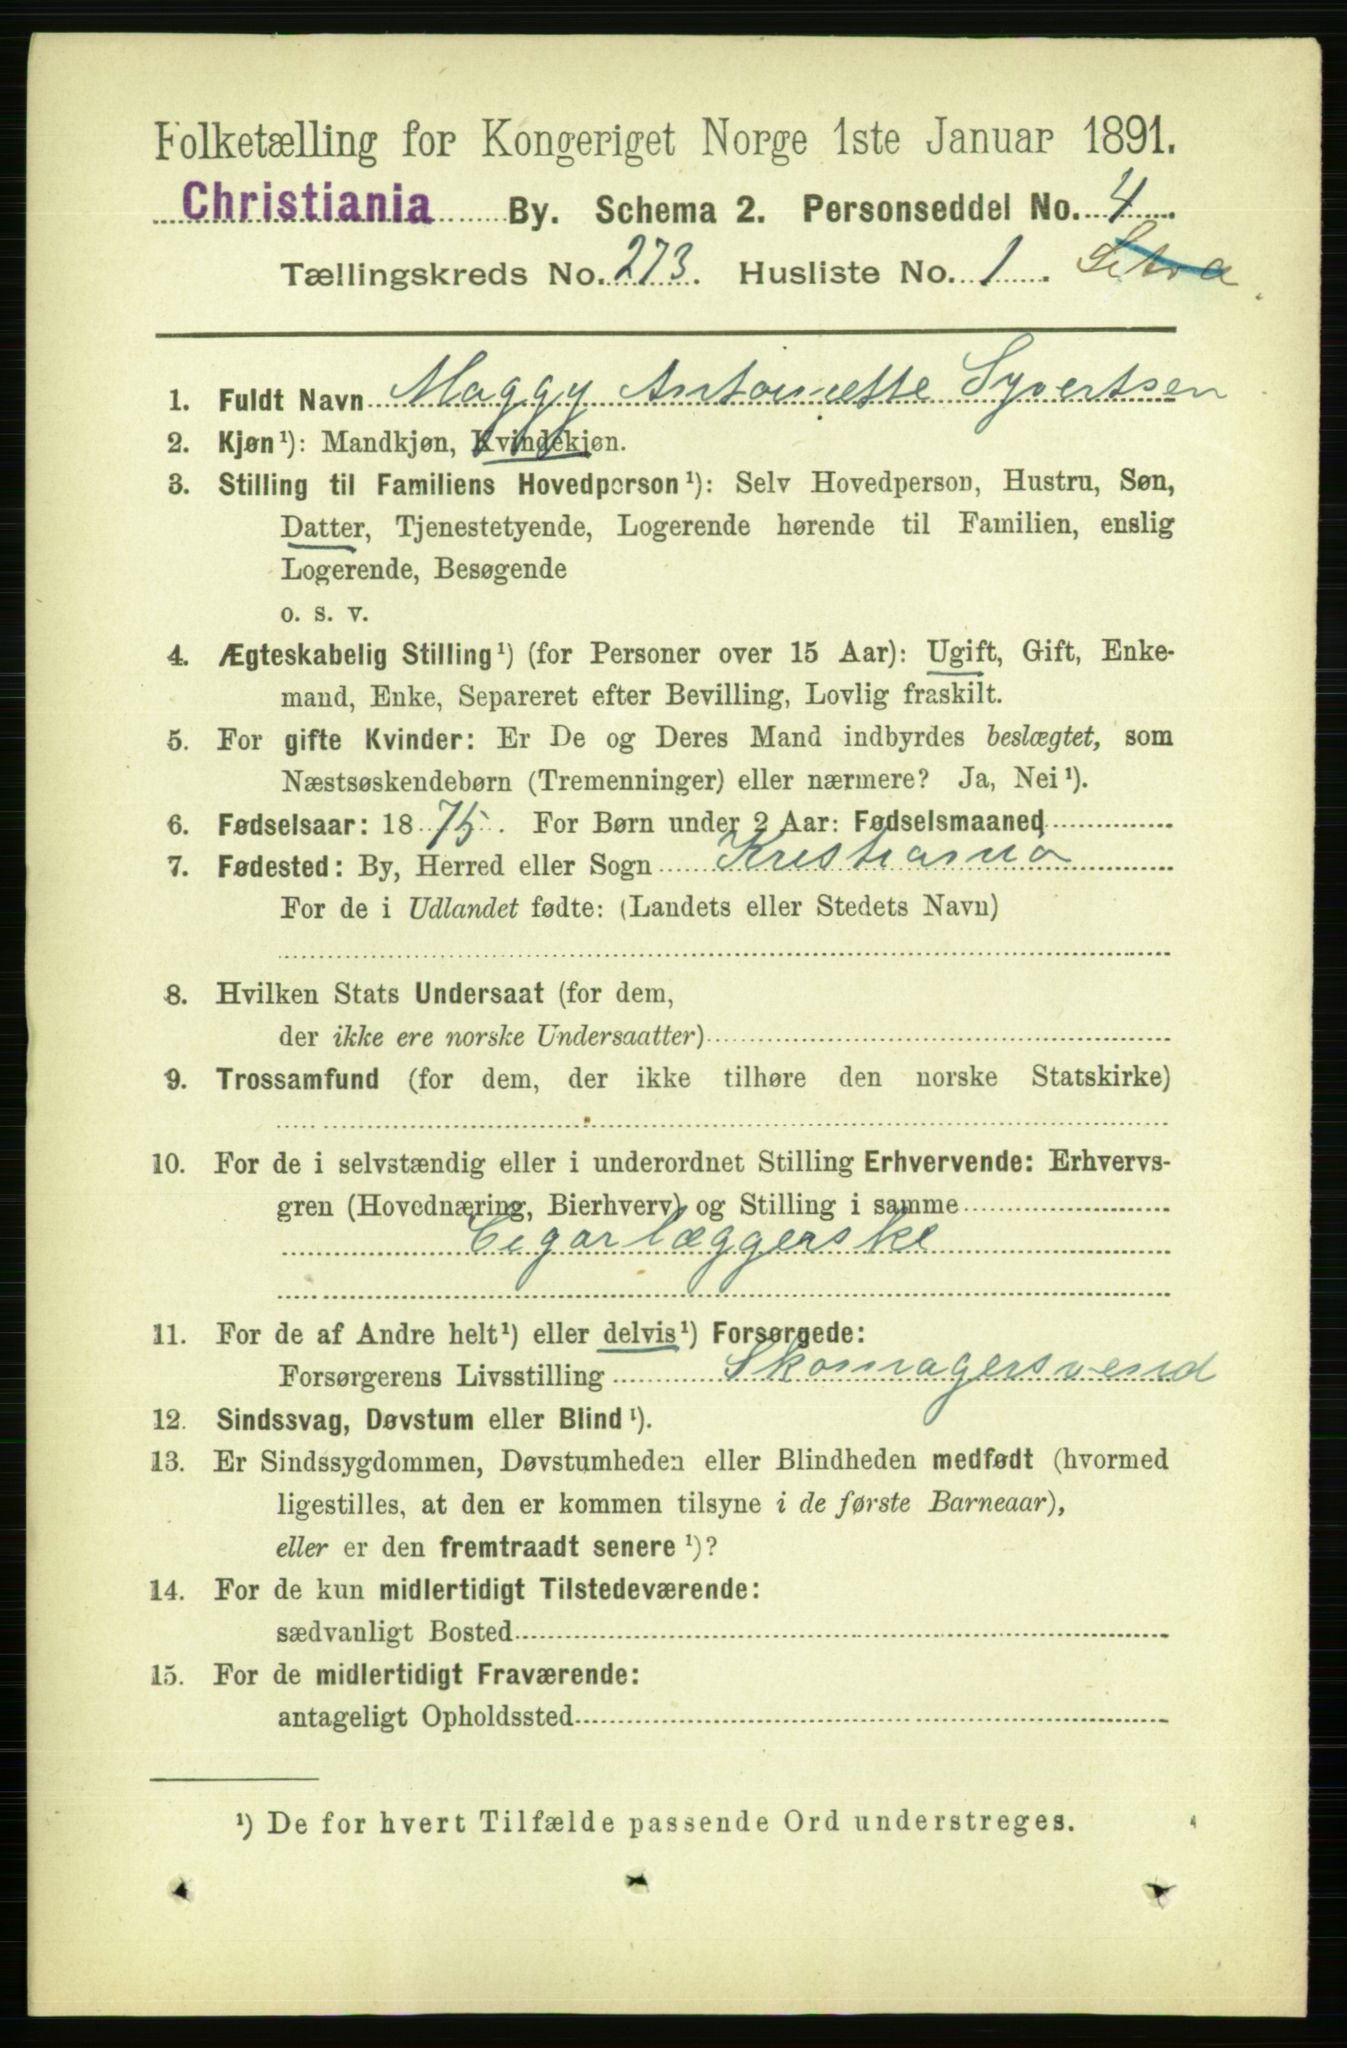 Folketælling for Kongeriget Norge 1ste Januar 1891.
Christiania By. Schema 2. Personseddel No. 4
Tællingskreds No. 273. Husliste No. 1.
1. Fuldt Navn Maggy Antoinette Syvertsen
2. Kjøn¹): Mandkjøn, Kvindekjøn.
3. Stilling til Familiens Hovedperson¹): Selv Hovedperson, Hustru, Søn,
Datter, Tjenestetyende, Logerende hørende til Familien, enslig
Logerende, Besøgende
o. s. v.
4. Ægteskabelig Stilling¹) (for Personer over 15 Aar): Ugift, Gift, Enke-
mand, Enke, Separeret efter Bevilling, Lovlig fraskilt.
5. For gifte Kvinder: Er De og Deres Mand indbyrdes beslægtet, som
Næstsøskendebørn (Tremenninger) eller nærmere? Ja, Nei¹).
6. Fødselsaar: 1875. For Børn under 2 Aar: Fødselsmaaned
7. Fødested: By, Herred eller Sogn Kristiania
For de i Udlandet fødte: (Landets eller Stedets Navn)
8. Hvilken Stats Undersaat (for dem,
der ikke ere norske Undersaatter)
9. Trossamfund (for dem, der ikke tilhøre den norske Statskirke)
10. For de i selvstændig eller i underordnet Stilling Erhvervende: Erhvervs-
gren (Hovednæring, Bierhverv) og Stilling i samme
Cigarlæggerske
11. For de af Andre helt¹) eller delvis¹) Forsørgede:
Forsørgerens Livsstilling Skomagersvend
12. Sindssvag, Døvstum eller Blind¹).
13. Er Sindssygdommen, Døvstumheden eller Blindheden medfødt (hvormed
ligestilles, at den er kommen tilsyne i de første Barneaar),
eller er den fremtraadt senere¹)?
14. For de kun midlertidigt Tilstedeværende:
sædvanligt Bosted
15. For de midlertidigt Fraværende:
antageligt Opholdssted
¹) De for hvert Tilfælde passende Ord understreges.